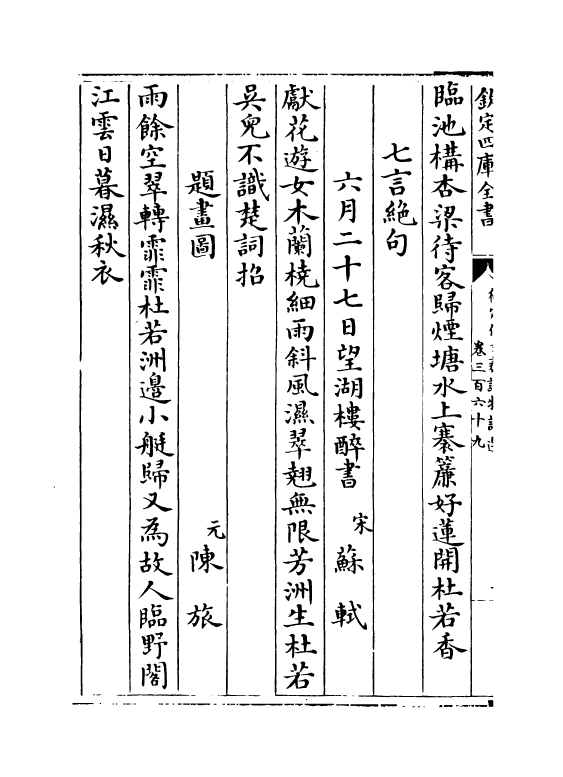 欽定四庫全書
卷三百六十九
臨池構杏梁待客歸煙塘水上褰簾好蓮開杜若香
七言絶句
六月二十七日望湖樓醉書
宋 蘇軾
獻花遊女木蘭橈細雨斜風濕翠翹無限芳洲生杜若
吳兒不識楚詞招
題畫圖
元 陳旅
雨餘空翠轉霏霏杜若洲邊小艇歸又為故人臨野閣
江雲日暮濕秋衣